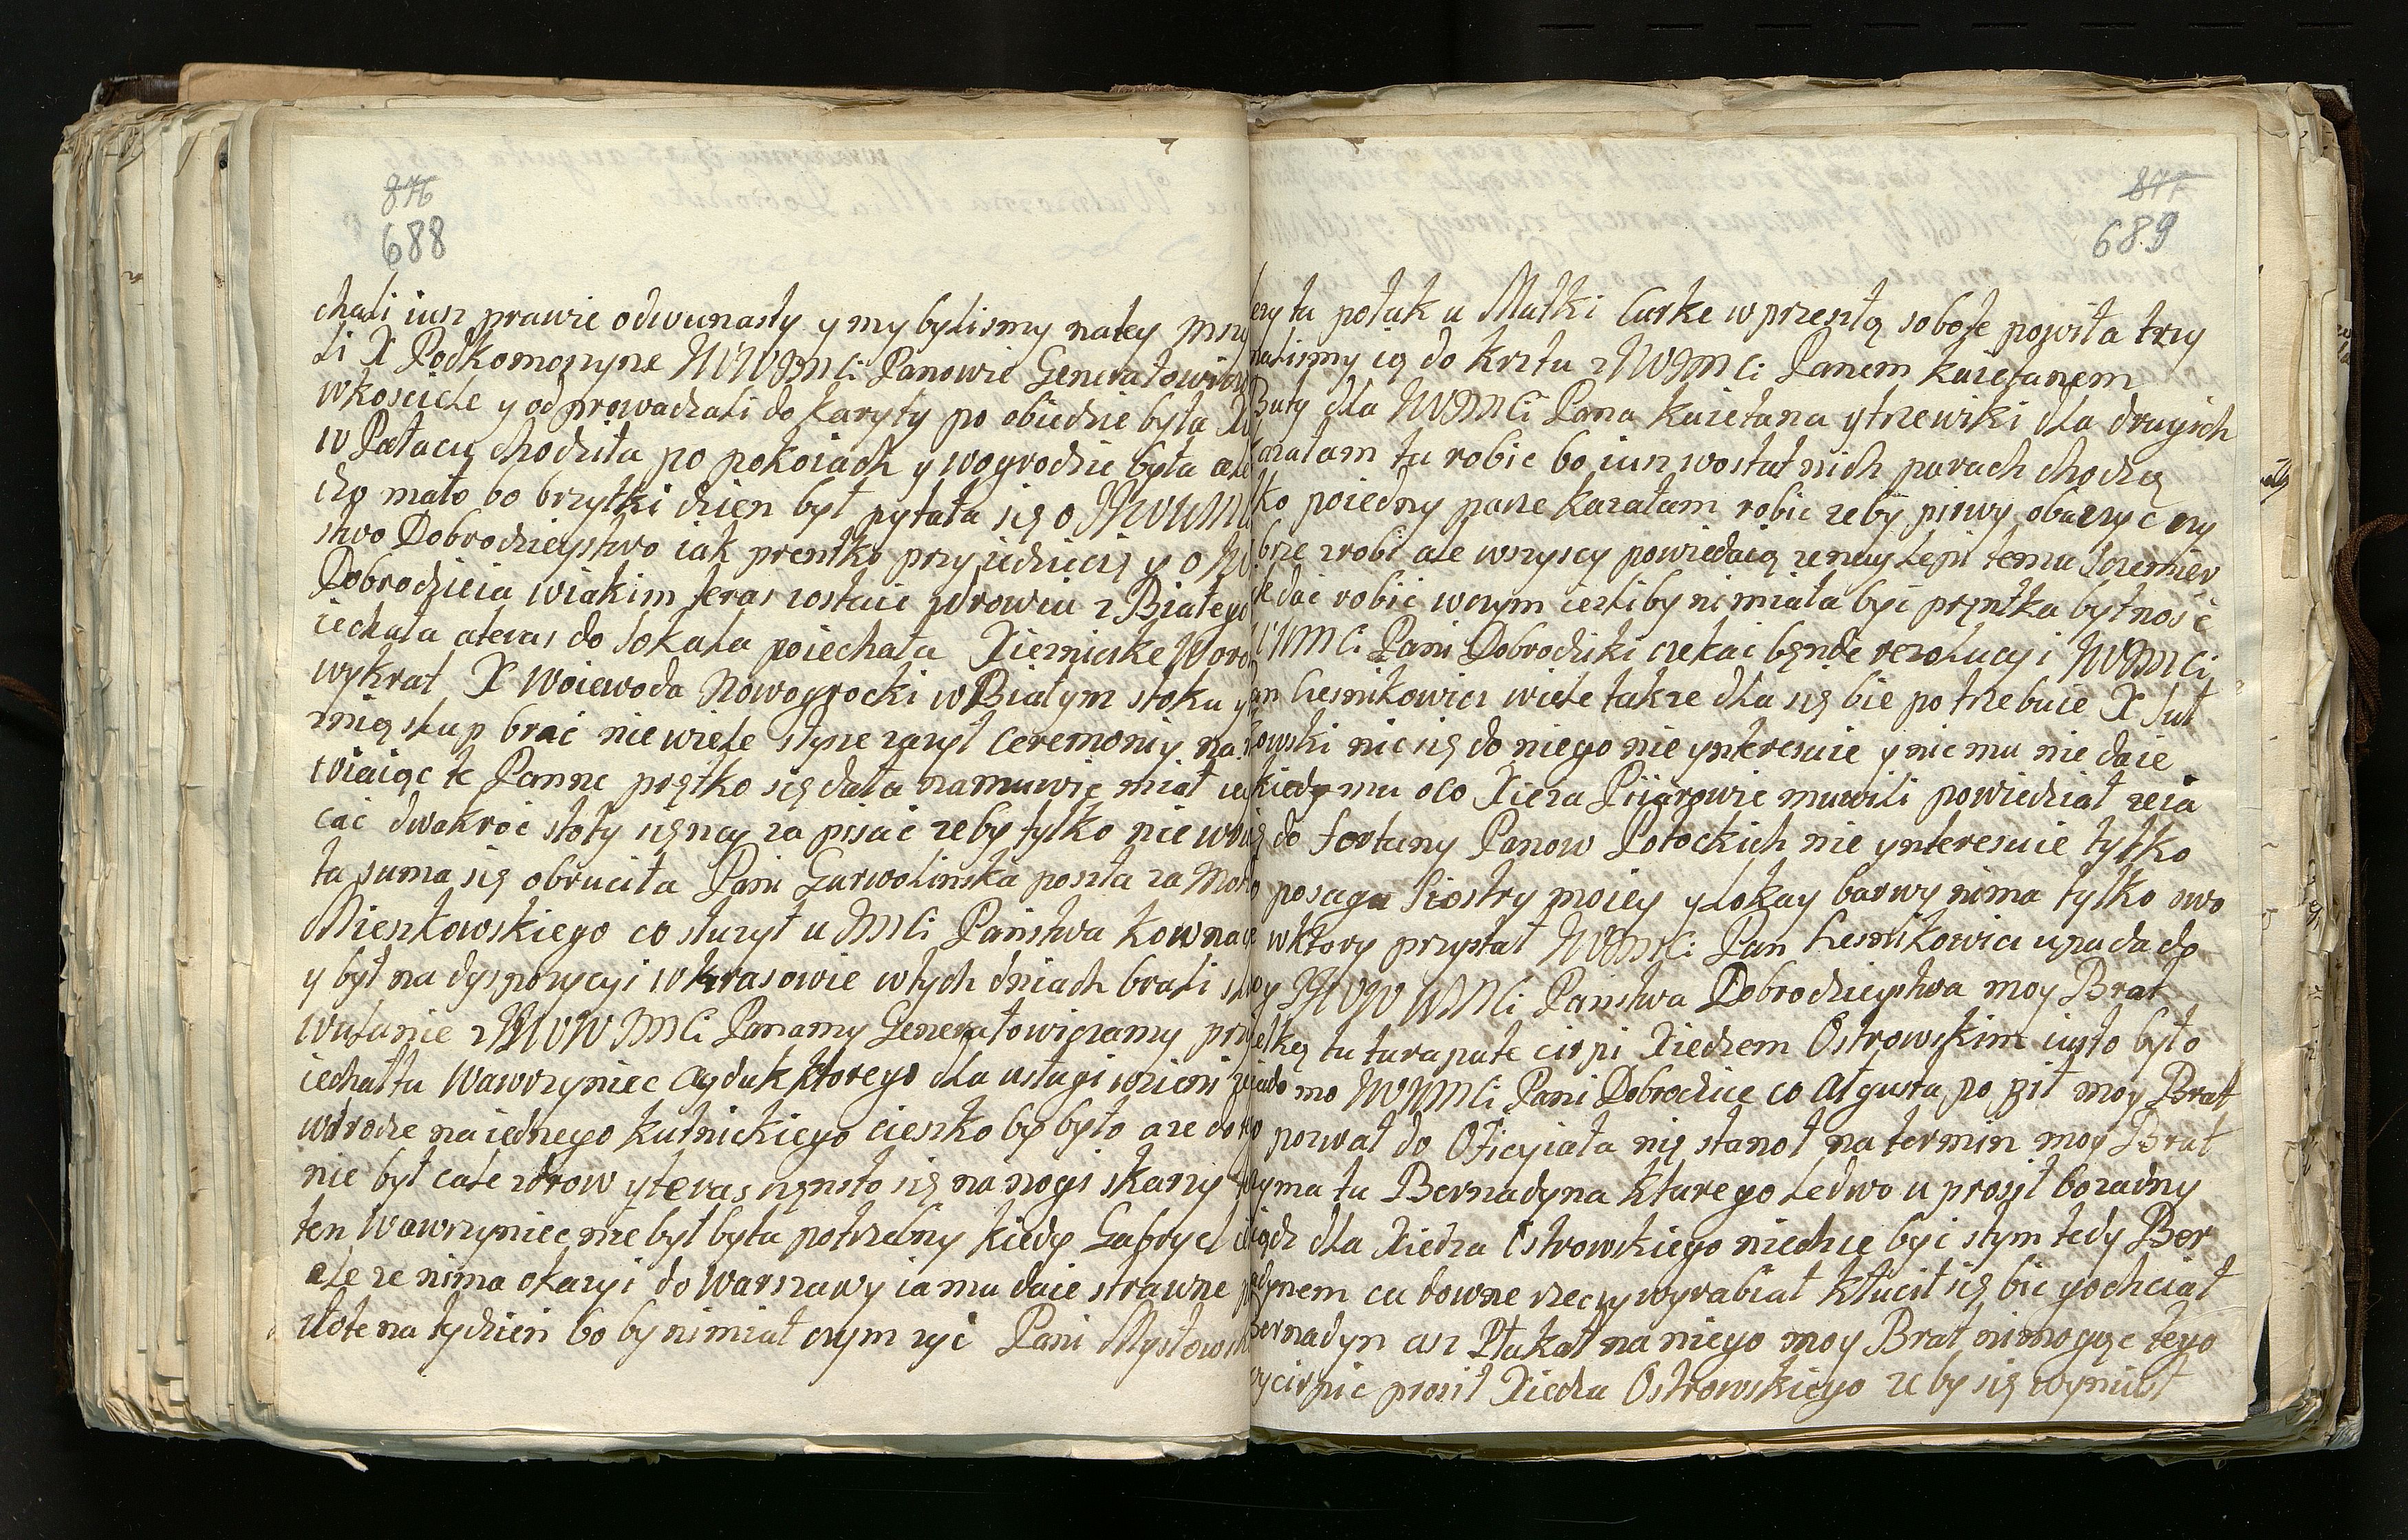 876
688
chali iusz prawie odwunasty y my bylismy natey mszy
li X Podkomorzyne WWJMCi Panowie Generałowiczo
wkosciele y odprowadzali do karyty po obiedzie była
w Pałacu chodziła po pokoiach y wogrodzie była ale
czo mało bo brzytki dzien był pytała się o JWWM
stwo Dobrodzieystwo iak prentko przyiedziecię y o
Dobrodzieia wiakim teras zostaie zdrowiu z Białego
iechała ateras do Sokala poiechała Xiemieske Woro
wykrat X Woiewoda Nowogrocki w Białym stoku y
mią slup brać nie wiele stysz zazył Ceremoniy na
wiaiąc te Panne prętko się dała namuwic miał
cać dwakroć stoty sięncy zapisać zeby tylko nie
ta suma się obruciła Pani Garwolinska poszła za
Mienkowskiego co słuzył u JMCi Państwa Kowna
y był na dyspozycyi w Krasowie wtych dniach brali
Wulanie z JWWJMCi Panamy Generałowiczamy
iechał tu Wawrzyniec aydukktorego dla usługi wzieni
wdrodze naiednego Kutnickiego cieszko by było aze do
nie był cale zdrow yteras częnsto się na nogi skarzy
ten Wawrzyniec nie był byłu potrzebny kiedy Gabryel
ale ze nima okazyi do Warszawy ia mu daie strawne
złote na tydzien bo by nimiał czym zyć Pani Mysłows
877
689
tu połuk u Matki Curke w przeszłą sobote powiła trzy
malismy ią do krztu z WJMCi Panem Kaietanem
Buty dla WJMCi Pana Kaietana ytrzewiki dla drugich
kazałam tu robic bo iusz wostatnich parach chodzą
ko poiedny parze kazałam robic zeby pirwy obaczyć czy
brze zrobi ale wszyscy powiedaią zenaylepi temu Szemier
dać robić wczym iezliby nimiała być pręntka bytnosć
WMCi Pani Dobrodziki czekać bęnde rezolucyi WJMCi
Pan Lesnikowicz wiele takze dla się bie potrzebuie X Sut
kowski nic się do niego nie ynteresuie ynic mu nie daie
kiedy mu oco Xieza Piiarowie muwili powiedział zeia
się do fortuny Panow Potockich nie ynteresuie tylko
posagu Siostry moiey ylokay barwy nima tylko owo
wktory przystał WJMCi Pan Lesnikowicz upada do
JWWWMCi Panstwa Dobrodzieystwa moy Brat
wielką tu turapate cirpi Xiedzem Ostrowskim iusto było
wiadomo WJMCi Pani Dobrodzice co Atgusta pobił moy Brat
pozwał do Oficyiała nię stanoł na termin moy Brat
trzyma tu Bernadyna kturego ledwo uprosił bozadny
Xiądz dla Xiedza Ostrowskiego niechce być stym tedy Ber
nadynem cudowne rzeczy wyrabiał kłucił się bic gochciał
Bernadyn asz Płakał na niego moy Brat nimogąc tego
wycirpic prosił Xiedza Ostrowskiego zeby się wyniusł